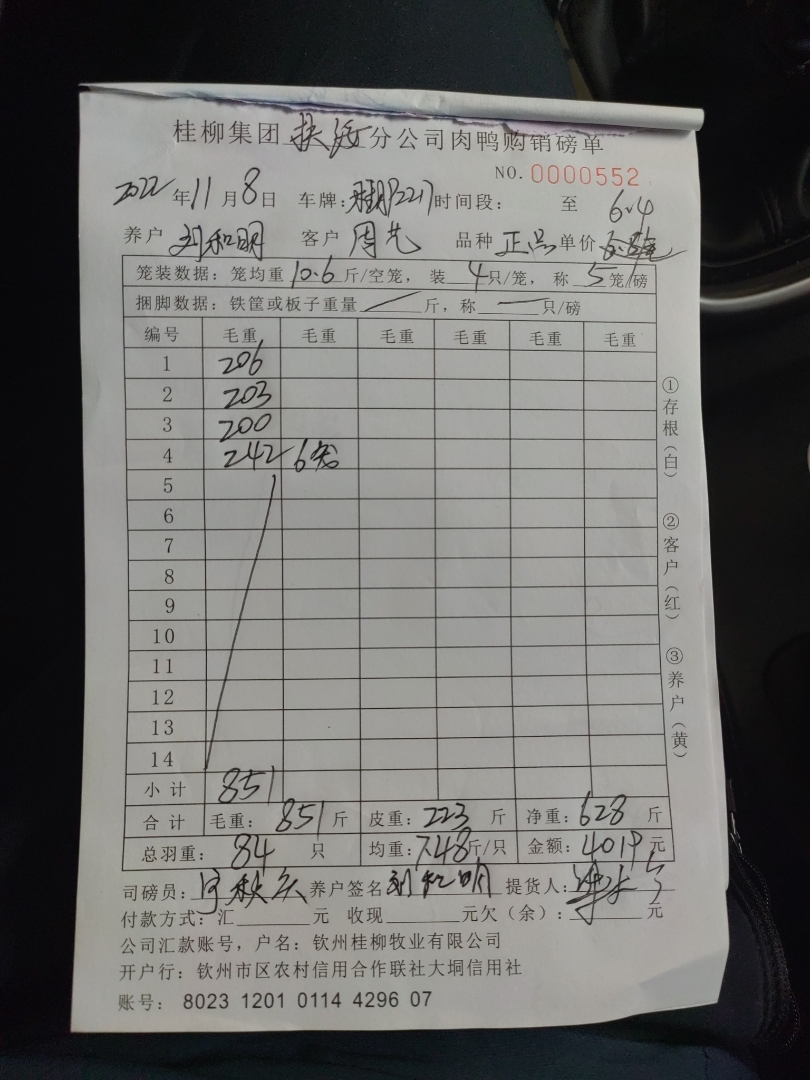 桂柳集团扶绥分公司肉鸭购销磅单
NO. 0000552
2022年11月8日 车牌: 217 时间段: 至
6.4
养户 刘和明 客户 周先 品种 正品 单价
笼装数据: 笼均重10.6斤/空笼, 装4只/笼, 称5笼/磅
捆脚数据: 铁筐或板子重量／斤, 称一只/磅
编号 毛重 毛重 毛重 毛重 毛重 毛重
1 206
2 203
3 200
4 242 6笼
5
6
7
8
9
10
11
12
13
14
小计 851
合计 毛重: 851斤 皮重: 223斤 净重: 628斤
总羽重: 84只 均重: 7.48斤/只 金额: 4019元
司磅员: 养户签名 刘和明 提货人:
付款方式: 汇______元 收现______元欠(余): ______元
公司汇款账号, 户名: 钦州桂柳牧业有限公司
开户行: 钦州市区农村信用合作联社大垌信用社
账号: 8023 1201 0114 4296 07
①存根(白)
②客户(红)
③养户(黄)